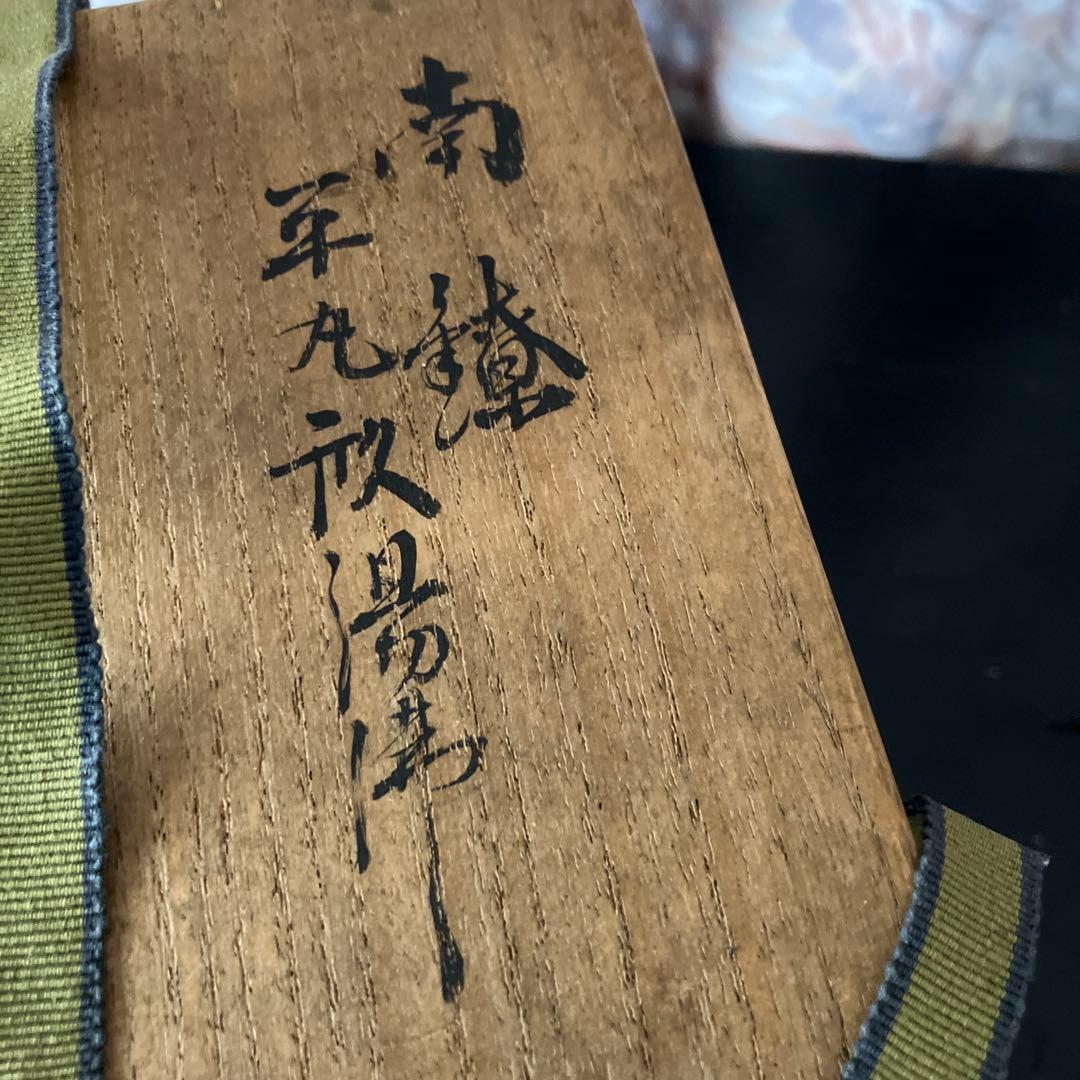 南鐐
平丸形湯沸